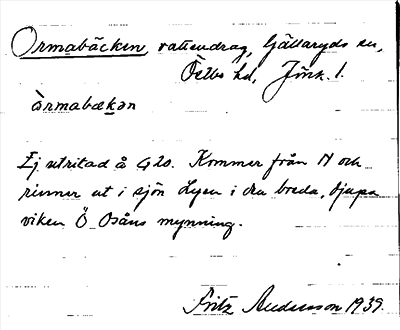 Ormabäcken, vattendrag, Gällaryds sn,
Östbo hd, Jönk. l.
òrmabækən
Ej utritad å G20. Kommer från N och
rinner ut i sjön Lyen i dra breda, djupa
viken Ö Osåns mynning.
Fritz Andersson 1939.